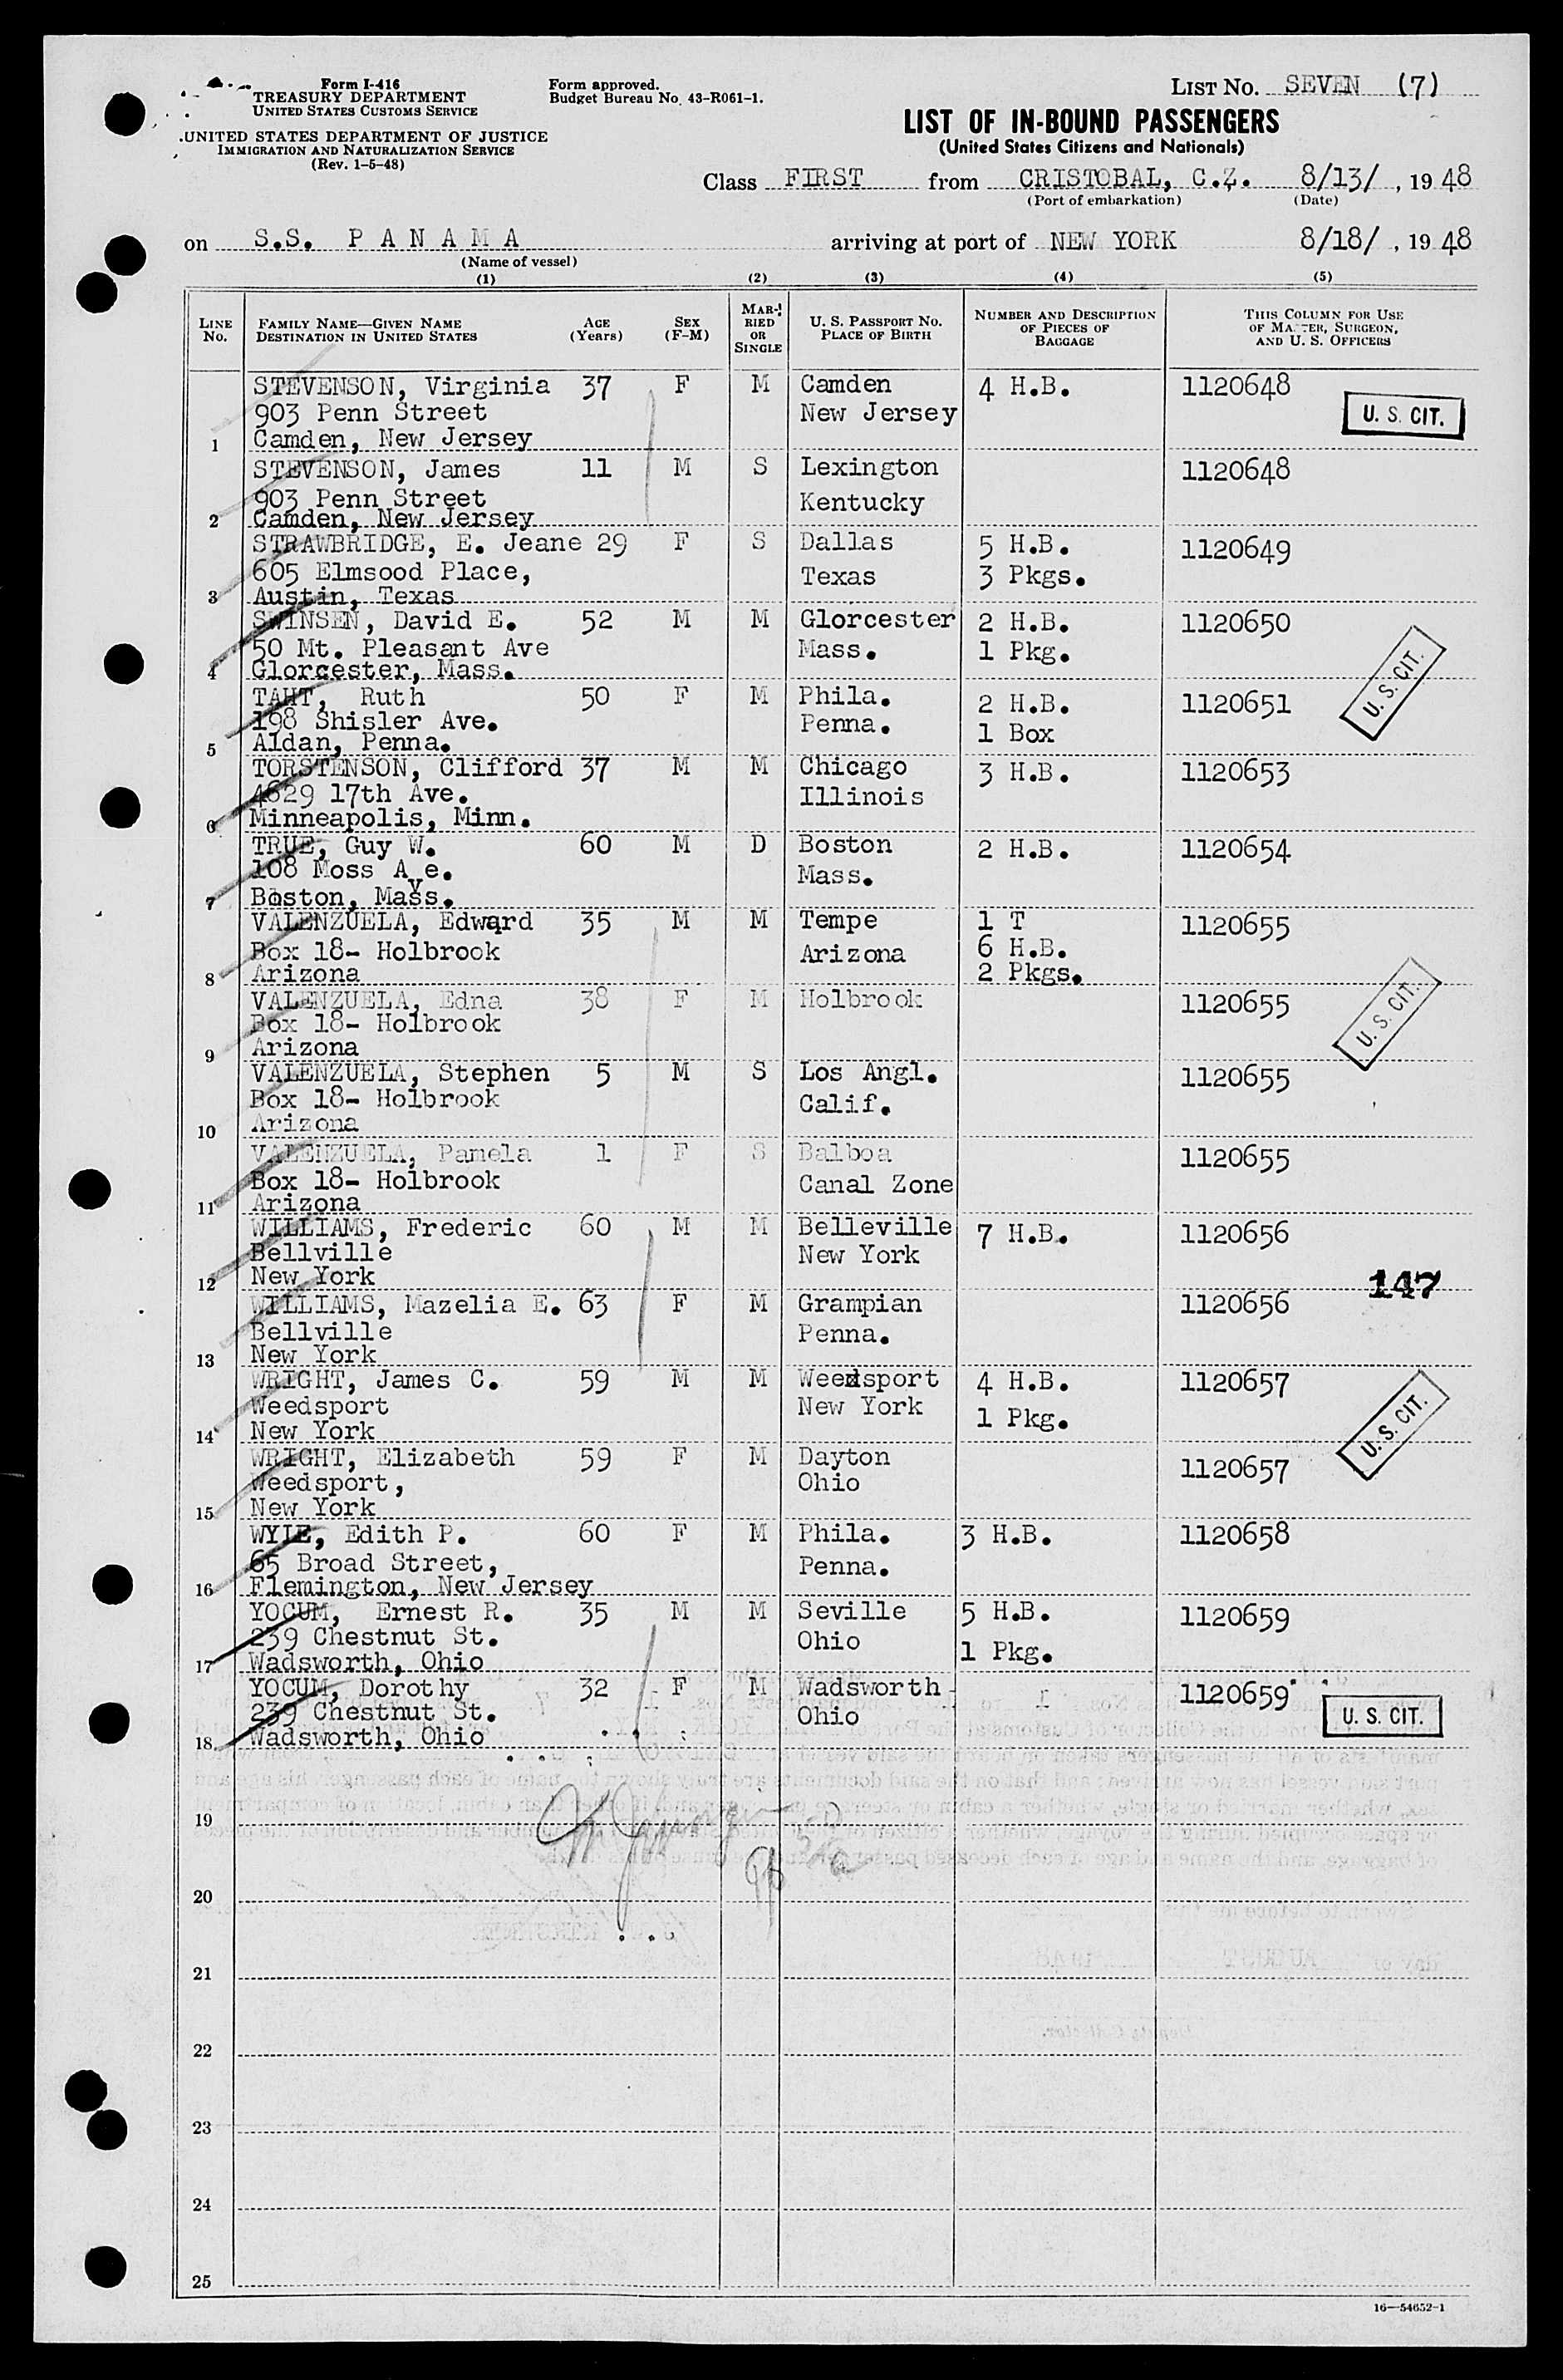 Form I-416
TREASURY DEPARTMENT
UNITED STATES CUSTOMS SERVICE
UNITED STATES DEPARTMENT OF JUSTICE
IMMIGRATION AND NATURALIZATION SERVICE
(Rev. 1-5-48)
Form approved.
Budget Bureau No. 43-R061-1.
LIST No. SEVEN (7)
LIST OF IN-BOUND PASSENGERS
(United States Citizens and Nationals)
Class FIRST from CRISTOBAL, C.Z. 8/13/, 19 48
(Port of embarkation) (Date)
on S.S. P A N A M A arriving at port of NEW YORK 8/18/, 19 48
(Name of vessel)
(1) (2) (3) (4) (5)
LINE No. FAMILY NAME—GIVEN NAME DESTINATION IN UNITED STATES AGE (Years) SEX (F-M) MARRIED OR SINGLE U. S. PASSPORT NO. PLACE OF BIRTH NUMBER AND DESCRIPTION OF PIECES OF BAGGAGE THIS COLUMN FOR USE OF MASTER, SURGEON, AND U. S. OFFICERS
STEVENSON, Virginia 37 F M Camden 4 H.B. 1120648
903 Penn Street New Jersey U. S. CIT.
1 Camden, New Jersey
STEVENSON, James 11 M S Lexington 1120648
903 Penn Street Kentucky
2 Camden, New Jersey
STRAWBRIDGE, E. Jeane 29 F S Dallas 5 H.B. 1120649
605 Elmsood Place, Texas 3 Pkgs.
3 Austin, Texas
SWINSEN, David E. 52 M M Glorcester 2 H.B. 1120650
50 Mt. Pleasant Ave Mass. 1 Pkg.
4 Glorcester, Mass. U. S. CIT.
TAHT, Ruth 50 F M Phila. 2 H.B. 1120651
198 Shisler Ave. Penna. 1 Box
5 Aldan, Penna.
TORSTENSON, Clifford 37 M M Chicago 3 H.B. 1120653
4629 17th Ave. Illinois
6 Minneapolis, Minn.
TRUE, Guy W. 60 M D Boston 2 H.B. 1120654
108 Moss Ave. Mass.
7 Boston, Mass.
VALENZUELA, Edward 35 M M Tempe 1 T 1120655
Box 18- Holbrook Arizona 6 H.B.
8 Arizona 2 Pkgs.
VALENZUELA, Edna 38 F M Holbrook 1120655
Box 18- Holbrook U. S. CIT.
9 Arizona
VALENZUELA, Stephen 5 M S Los Angl. 1120655
Box 18- Holbrook Calif.
10 Arizona
VALENZUELA, Pamela 1 F S Balboa 1120655
Box 18- Holbrook Canal Zone
11 Arizona
WILLIAMS, Frederic 60 M M Belleville 7 H.B. 1120656
Bellville New York
12 New York 147
WILLIAMS, Mazelia E. 63 F M Grampian 1120656
Bellville Penna.
13 New York
WRIGHT, James C. 59 M M Weedsport 4 H.B. 1120657
Weedsport New York 1 Pkg.
14 New York U. S. CIT.
WRIGHT, Elizabeth 59 F M Dayton 1120657
Weedsport, Ohio
15 New York
WYLE, Edith P. 60 F M Phila. 3 H.B. 1120658
65 Broad Street, Penna.
16 Flemington, New Jersey
YOCUM, Ernest R. 35 M M Seville 5 H.B. 1120659
239 Chestnut St. Ohio 1 Pkg.
17 Wadsworth, Ohio
YOCUM, Dorothy 32 F M Wadsworth 1120659
239 Chestnut St. Ohio U. S. CIT.
18 Wadsworth, Ohio
19
20
21
22
23
24
25
16—54652-1